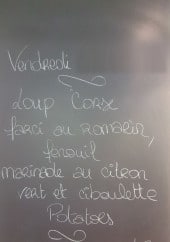 Vendredi
Loup Corse
farci au romarin,
fenouil
marinade au citron
vert et ciboulette
Potatoes